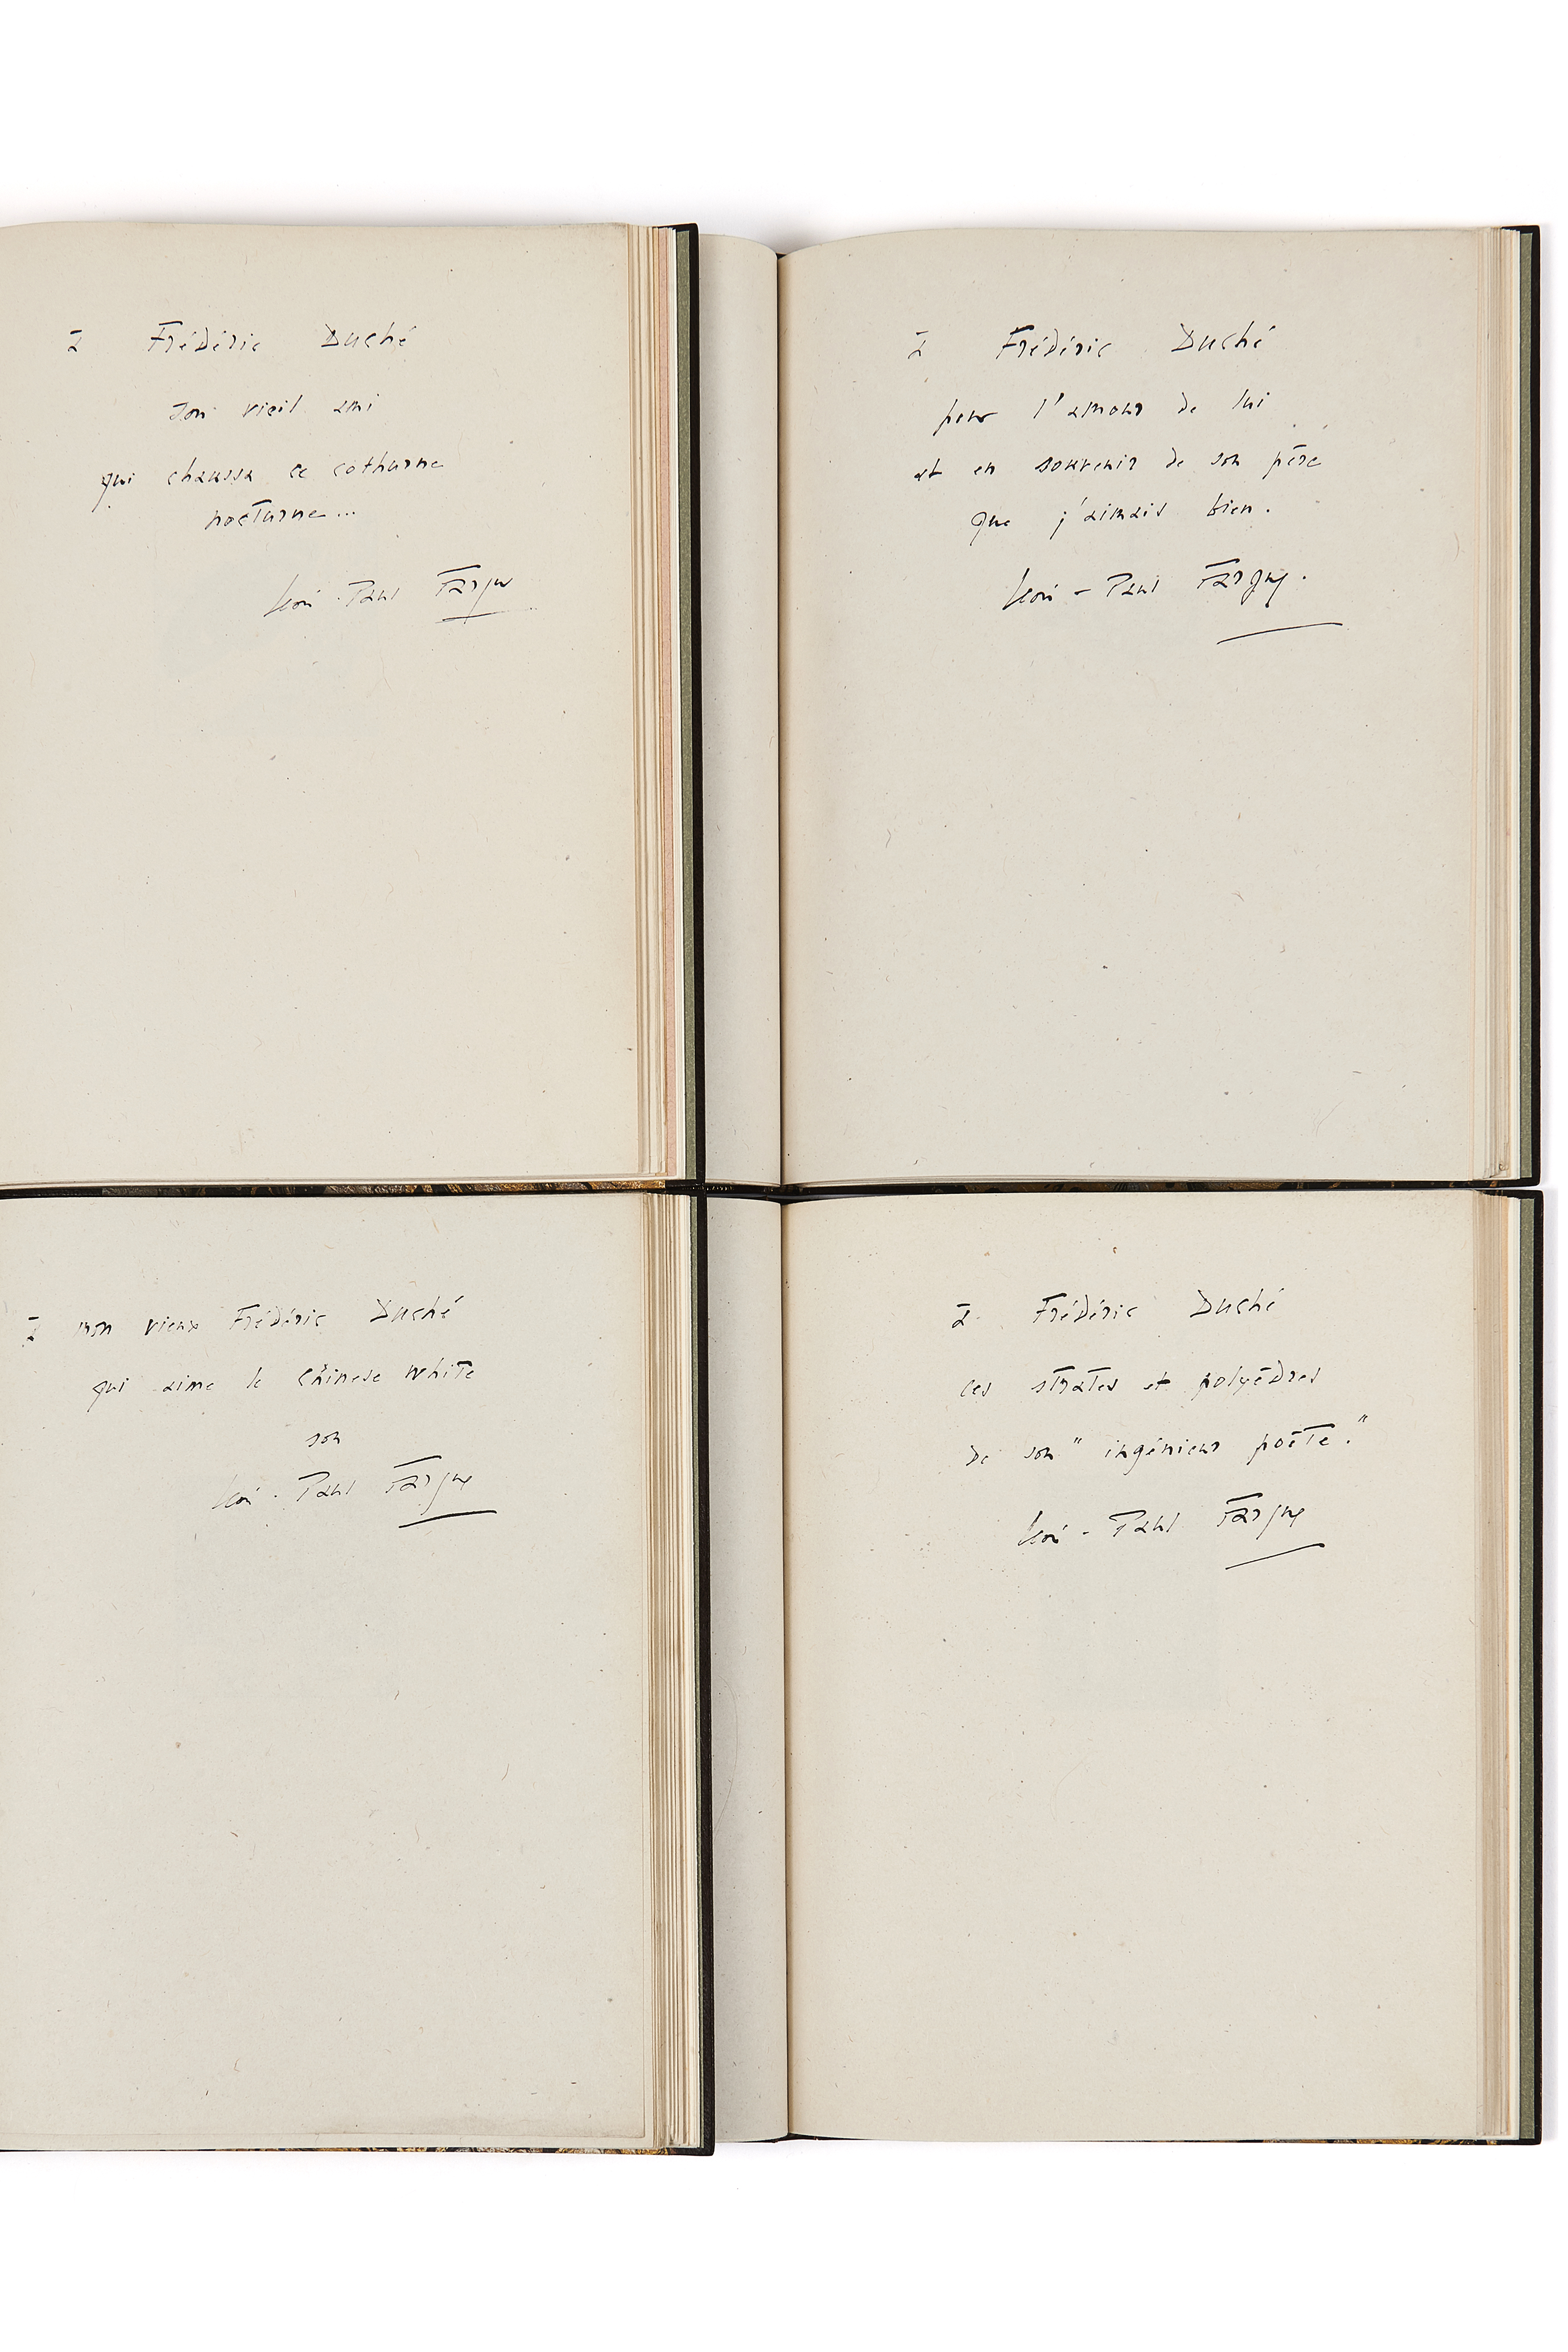 à Frédéric Duché
son vieil ami
qui chaussa ce cothurne
nocturne...
Léon-Paul Fargue
à Frédéric Duché
pour l'amour de lui
et en souvenir de son père
que j'aimais bien.
Léon-Paul Fargue.
à mon vieux Frédéric Duché
qui aime le Chinese white
son
Léon-Paul Fargue
à Frédéric Duché
ces strates et polyèdres
de son "ingénieur poète."
Léon-Paul Fargue